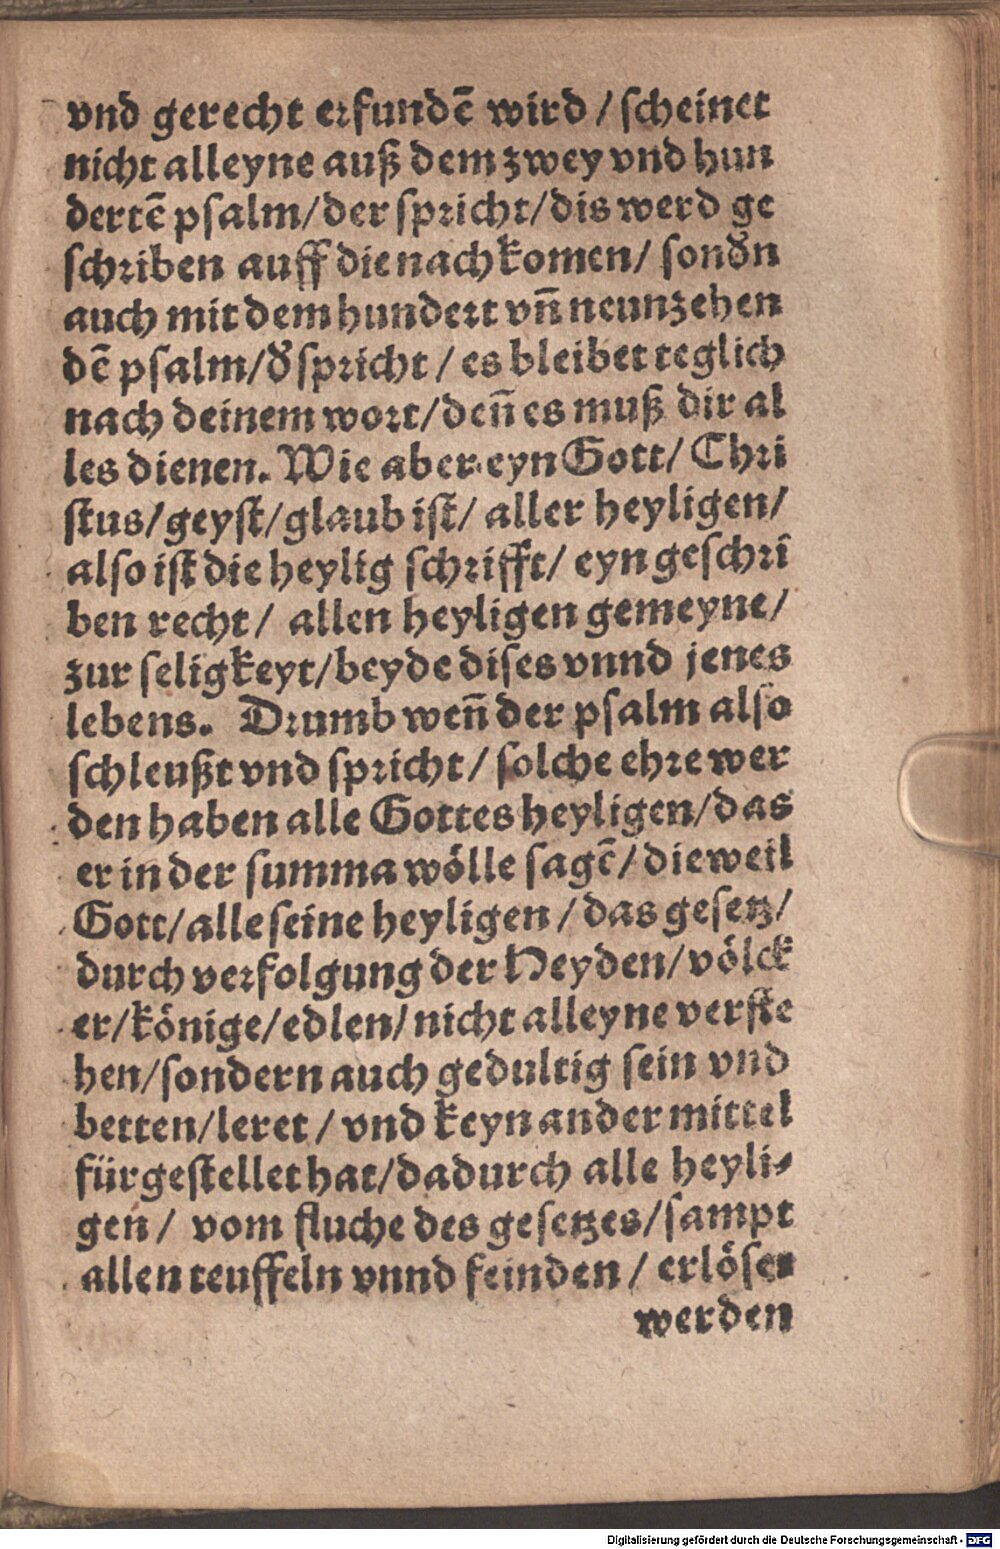 vnd gerecht erfundē wird / scheinet
nicht alleyne auß dem zwey vnd hun
dertē psalm/der spricht/dis werd ge
schriben auff die nachkomen/ sonđn
auch mit dem hundert vn̄ neunzehen
dē psalm/đ spricht / es bleibet teglich
nach deinem wort/den̄ es muß dir al
les dienen. Wie aber eyn Gott/ Chri
stus/geyst/glaub ist/ aller heyligen/
also ist die heylig schrifft/ eyn geschri
ben recht/ allen heyligen gemeyne/
zur seligkeyt/beyde dises vnnd jenes
lebens. Drumb wen̄ der psalm also
schleußt vnd spricht/ solche ehre wer
den haben alle Gottes heyligen/das
er in der summa wölle sagē/ dieweil
Gott/alle seine heyligen / das gesetz/
durch verfolgung der Heyden/völck
er/könige/edlen/ nicht alleyne verste
hen/sondern auch gedultig sein vnd
betten/leret / vnd keyn ander mittel
fürgestellet hat/dadurch alle heyli-
gen/ vom fluche des gesetzes/sampt
allen teuffeln vnnd feinden / erlöset
werden
Digitalisierung gefördert durch die Deutsche Forschungsgemeinschaft - DFG